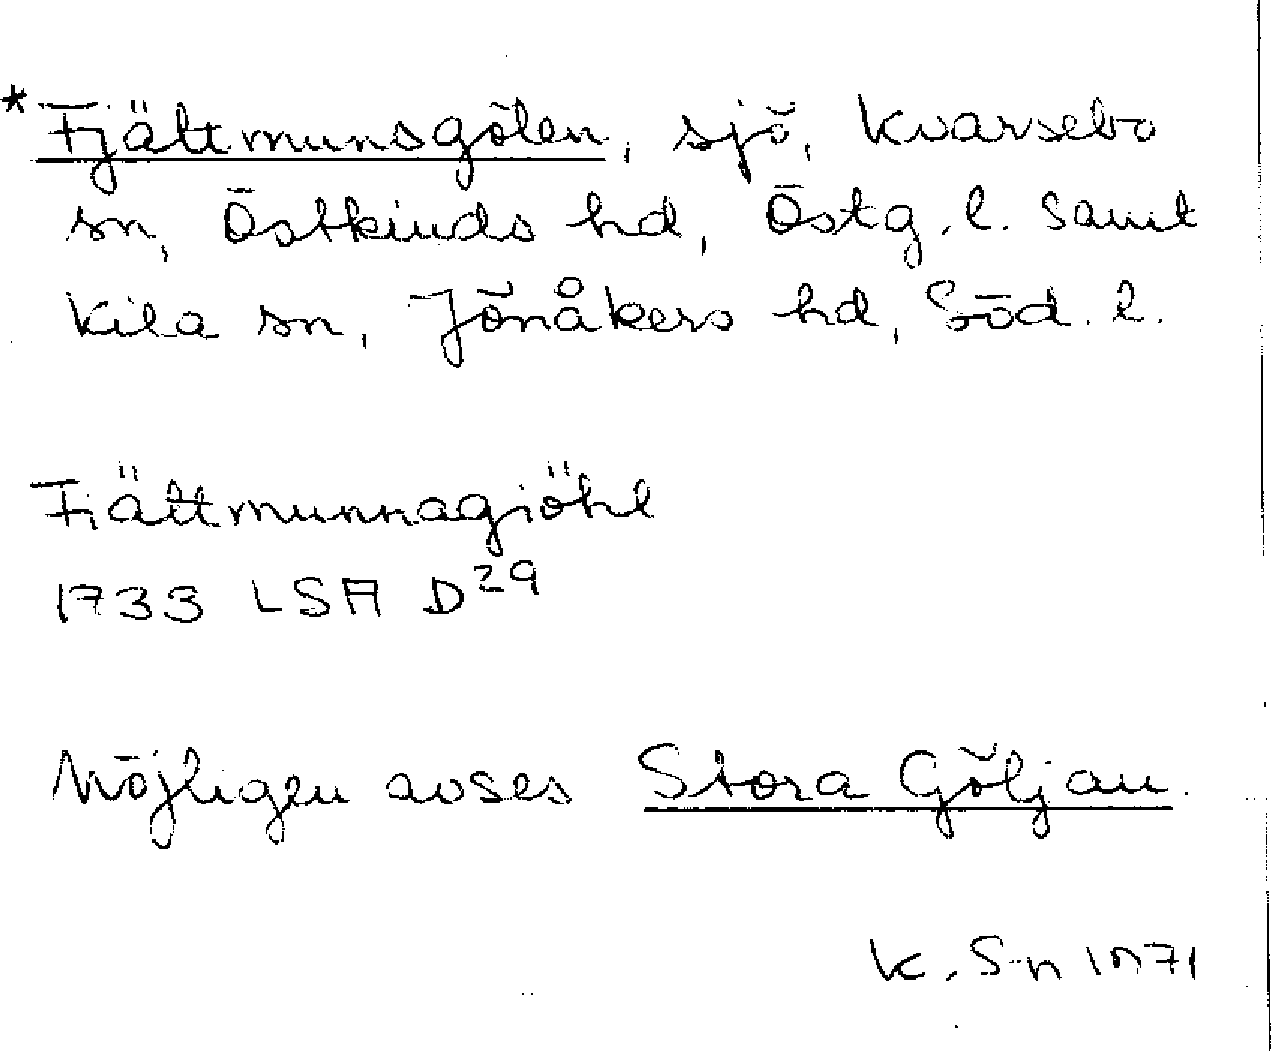 * Fjättmunsgölen, sjö, Kvarsebo
sn, Östkinds hd, Östg. l. samt
Kila sn, Jönåkers hd, Söd. l.
Fiättmunnagiöhl
1733 LSA D29
Möjligen avses Stora Göljan.
K. S-n 1971